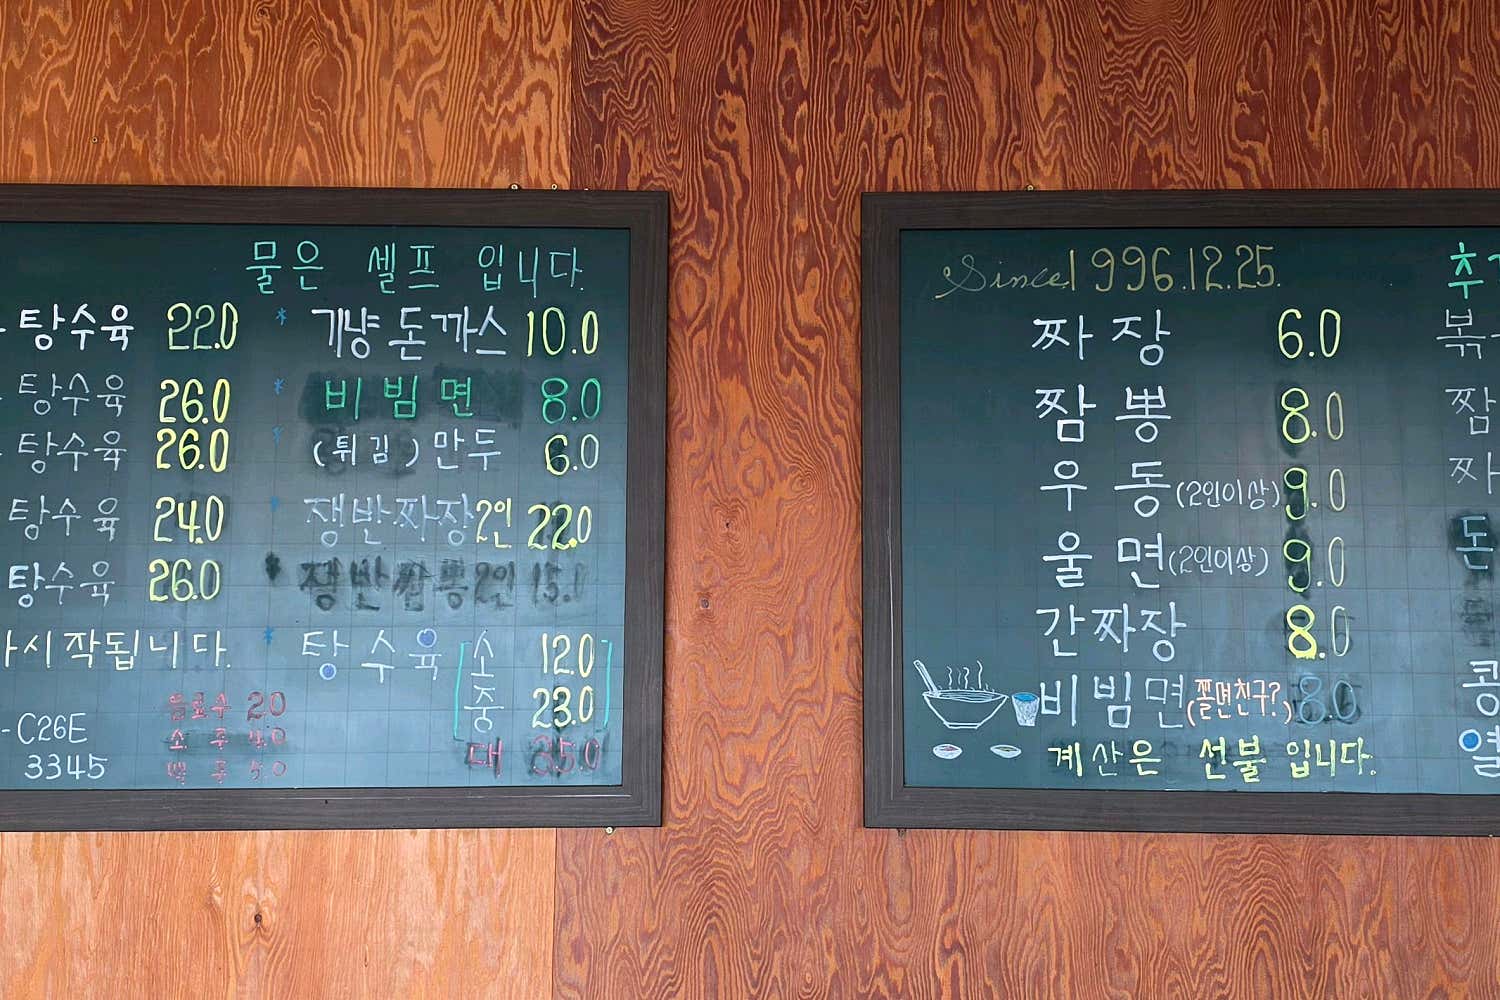 물은 셀프 입니다.
탕수육 22.0
탕수육 26.0
탕수육 26.0
탕수육 24.0
탕수육 26.0
시작됩니다.
-C26E
3345
음료수 2.0
소주 4.0
맥주 5.0
* 기냥돈까스 10.0
* 비빔면 8.0
* (튀김) 만두 6.0
* 쟁반짜장2인 22.0
* 쟁반짬뽕2인 15.0
* 탕수육 소 12.0
중 23.0
대 35.0
Since 1996.12.25.
짜장 6.0
짬뽕 8.0
우동(2인이상) 9.0
울면(2인이상) 9.0
간짜장 8.0
비빔면(쫄면친구?) 8.0
계산은 선불 입니다.
추
볶
짬
짜
돈
콩
열